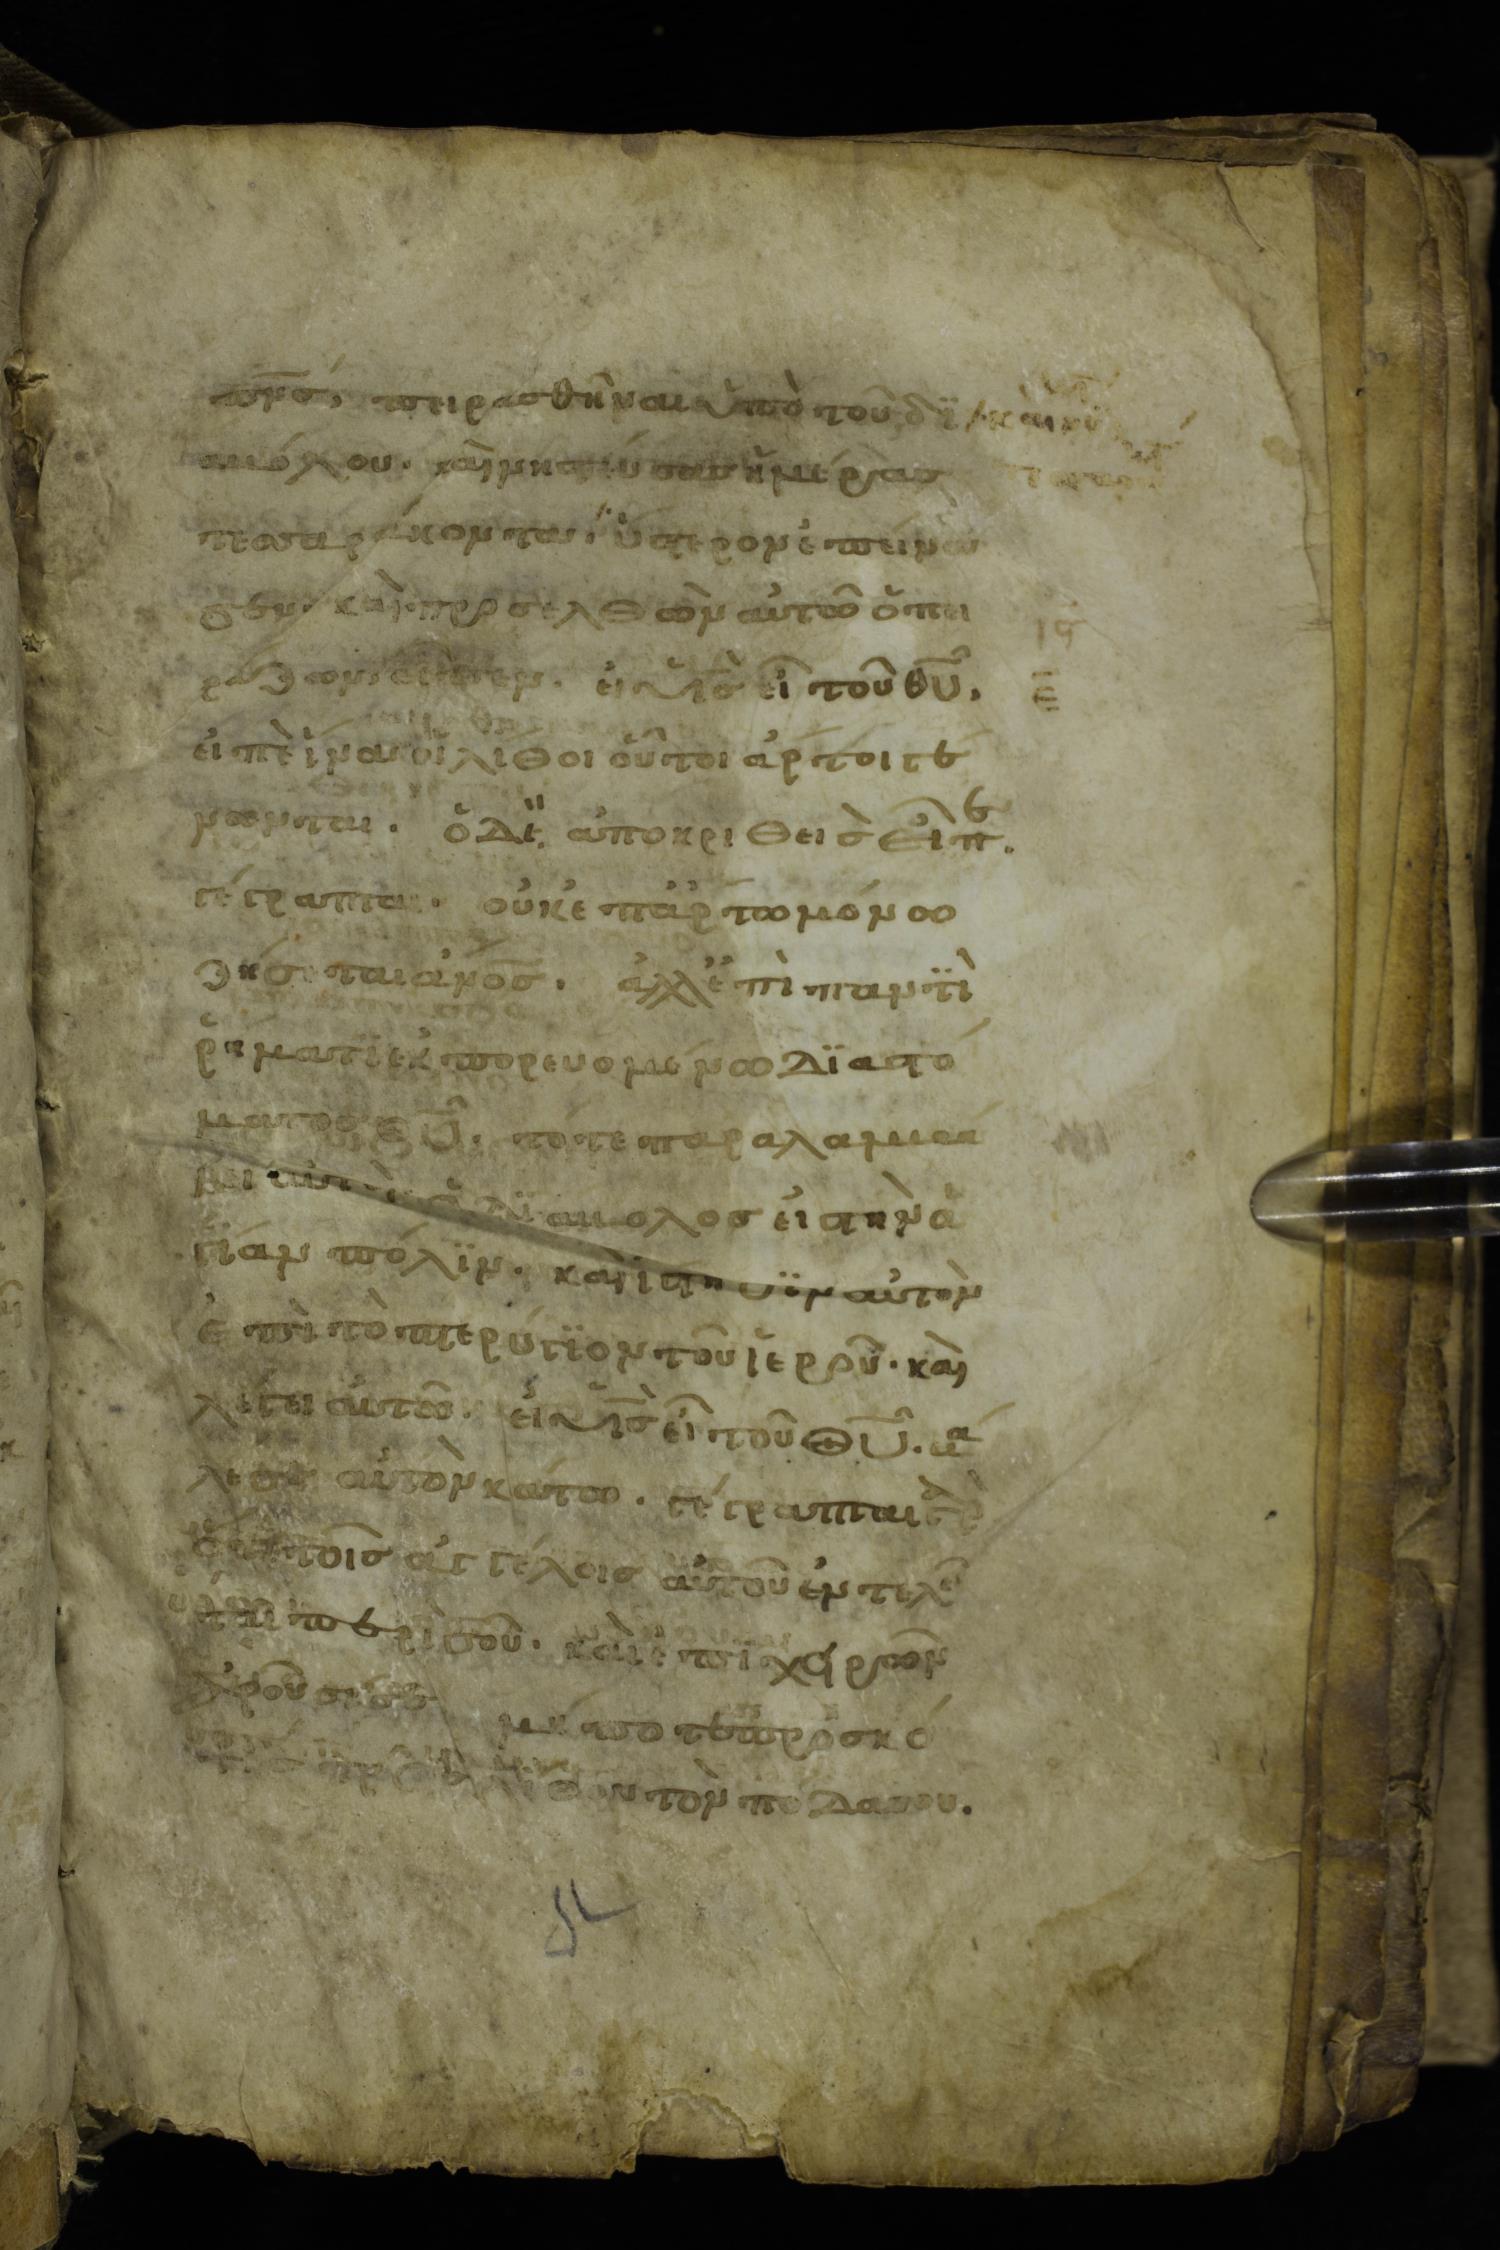 πν̅σ, πειρασθῆναι ὑπὸ τοῦ δϊ
αβόλου. καὶ νηστεύσας ἡμέρας
τεσσαράκοντα, ὕστερον ἐπείνα
σεν. καὶ προσελθὼν αὐτῶ ὁ πει
ράζων εἶπεν. εἰ υἱ̅σ εἶ τοῦ θ̅υ,
εἰπὲ ἵνα οἱ λίθοι οὗτοι ἄρτοι γέ
νωνται. ὁ δὲ ἀποκριθεὶς εἶπε.
γέγραπται. οὐκ ἐπ ἄρτω μόνω
ζήσεται ἀν̅οσ. ἀλλ ἐπὶ παντϊ
ῥήματϊ ἐκπορευομένω δϊα στό
ματος θ̅υ. τότε παραλαμβά
νει αὐτὸν ὁ δϊάβολος εἰς τὴν ἁ
γίαν πόλϊν. καὶ ἵστησϊν αὐτὸν
ἐπὶ τὸ πτερύγϊον τοῦ ἱεροῦ. καὶ
λέγει αὐτῶ. εἰ υἱ̅σ εἶ τοῦ θ̅υ. βά
λε σε αὐτὸν κάτω. γέγραπται γὰρ
ὅτι τοῖς ἀγγέλοις αὐτοῦ ἐντελεῖ
ται περὶ σοῦ. καὶ ἐπὶ χειρῶν
ἀροῦσί σε μήποτε προσκό
ψῃς πρὸς λίθον τὸν πόδα σου.
ιϛ
ε̅